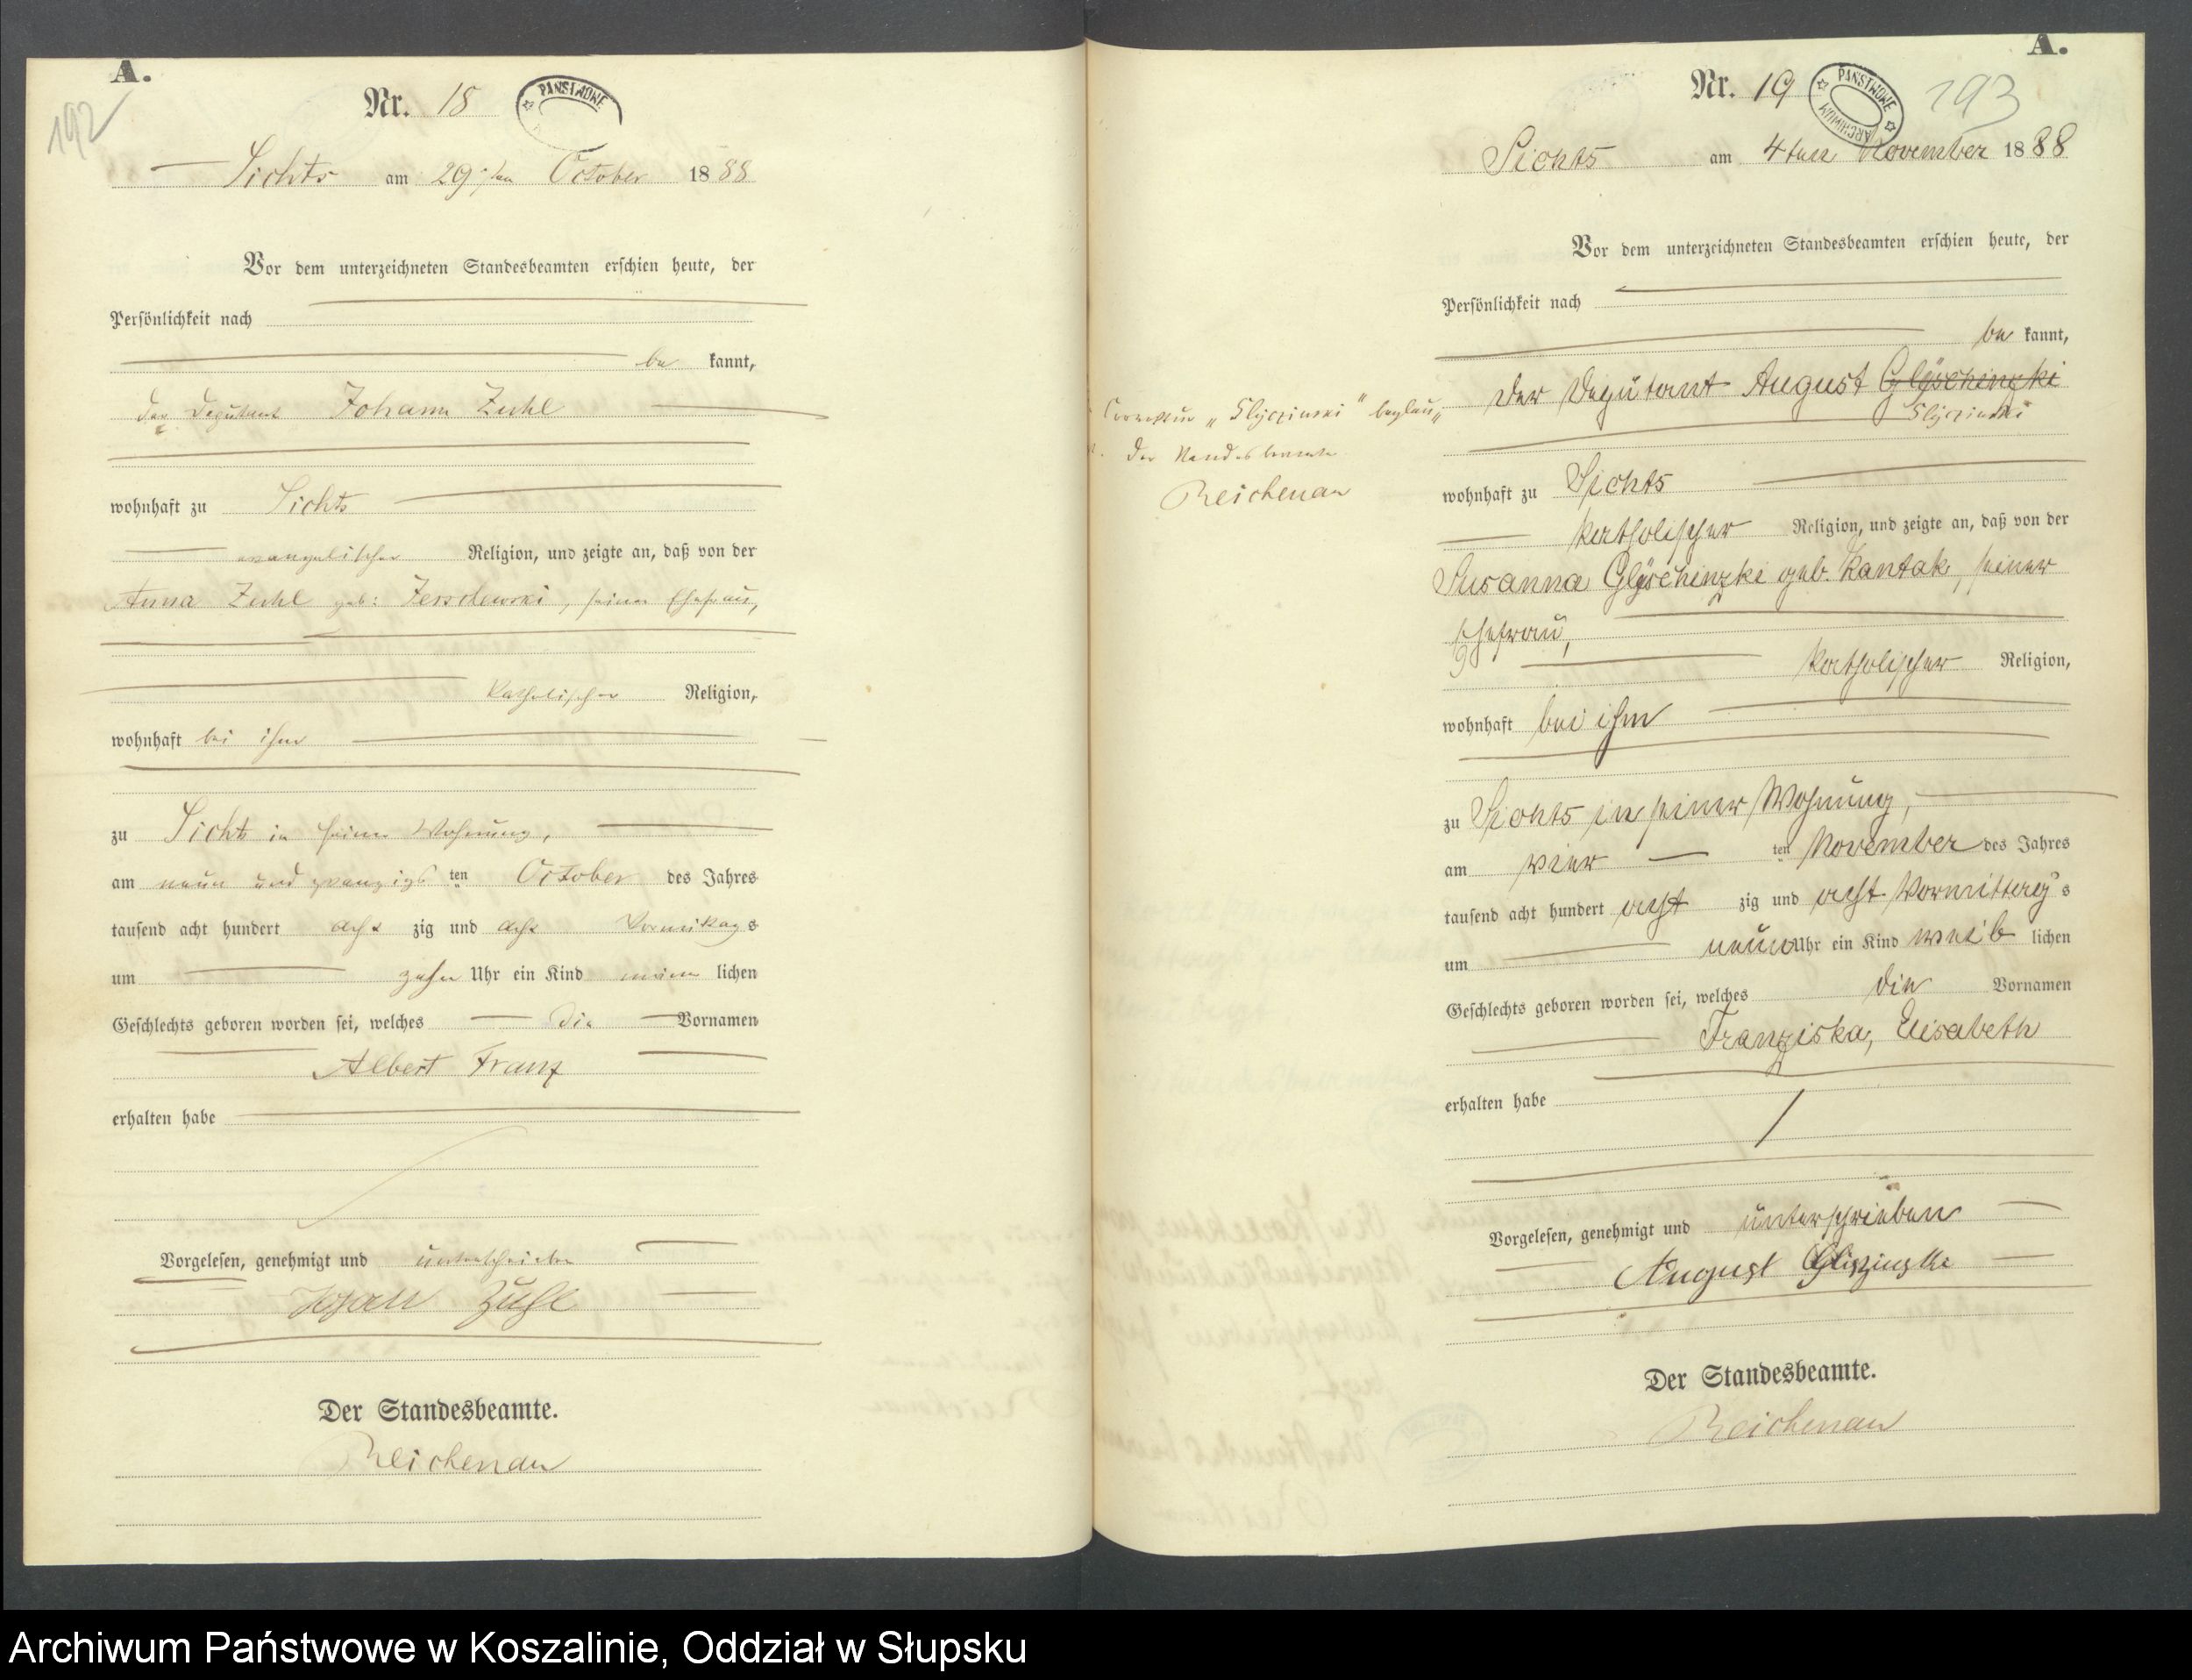 A.
192
Nr. 18
PAŃSTWOWE
Sichts am 29ten October 1888
Vor dem unterzeichneten Standesbeamten erschien heute, der
Persönlichkeit nach
be kannt,
der Deputant Johann Zuhl
wohnhaft zu Sichts
evangelischer Religion, und zeigte an, daß von der
Anna Zuhl geb: seiner Ehefrau,
katholischer Religion,
wohnhaft bei ihm
zu Sichts in seiner Wohnung,
am neun und zwanzigsten October des Jahres
tausend acht hundert acht zig und acht Vormittags
um zehn Uhr ein Kind männ lichen
Geschlechts geboren worden sei, welches die Vornamen
Albert Franz
erhalten habe
Vorgelesen, genehmigt und unterschrieben
Johann Zuhl
Der Standesbeamte.
Reichenau
A.
Nr. 19
PAŃSTWOWE ARCHIWUM
193
Sichts am 4ten November 1888
Vor dem unterzeichneten Standesbeamten erschien heute, der
Persönlichkeit nach
be kannt,
der Deputant August Glÿschinzki
wohnhaft zu Sichts
katholischer Religion, und zeigte an, daß von der
Susanna Glÿschinzki geb. Kantak, seiner
Ehefrau,
katholischer Religion,
wohnhaft bei ihm
zu Sichts in seiner Wohnung,
am vier ten November des Jahres
tausend acht hundert acht zig und acht Vormittags
um neun Uhr ein Kind weib lichen
Geschlechts geboren worden sei, welches die Vornamen
Franziska, Elisabeth
erhalten habe
Vorgelesen, genehmigt und unterschrieben
August
Der Standesbeamte.
Reichenau
Der Standesbeamte
Reichenau
Archiwum Państwowe w Koszalinie, Oddział w Słupsku